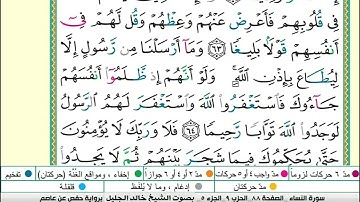 فِي قُلُوبِهِمْ فَأَعْرِضْ عَنْهُمْ وَعِظْهُمْ وَقُل لَّهُمْ فِيٓ
أَنفُسِهِمْ قَوْلَۢا بَلِيغٗا ٦٣ وَمَآ أَرْسَلْنَا مِن رَّسُولٍ إِلَّا
لِيُطَاعَ بِإِذْنِ ٱللَّهِۚ وَلَوْ أَنَّهُمْ إِذ ظَّلَمُوٓاْ أَنفُسَهُمْ
جَآءُوكَ فَٱسْتَغْفَرُواْ ٱللَّهَ وَٱسْتَغْفَرَ لَهُمُ ٱلرَّسُولُ
لَوَجَدُواْ ٱللَّهَ تَوَّابٗا رَّحِيمٗا ٦٤ فَلَا وَرَبِّكَ لَا يُؤْمِنُونَ
حَتَّىٰ يُحَكِّمُوكَ فِيمَا شَجَرَ بَيْنَهُمْ ثُمَّ لَا يَجِدُواْ
مدّ ٦ حركات لزوماً مدّ ٢ أو ٤ أو ٦ جوازاً إخفاء، ومواقع الغُنَّة (حركتان) تفخيم
مدّ حركتان إدغام، وما لا يُلفَظ قلقلة
سورة النساء الصفحة ٨٨ الحزب ٩ الجزء ٥ بصوت الشيخ خالد الجليل برواية حفص عن عاصم